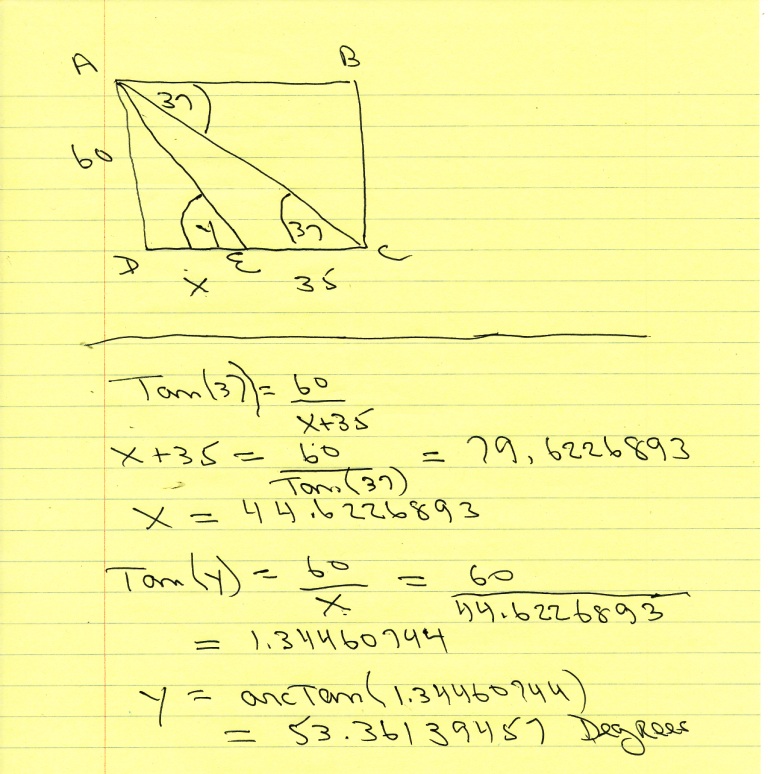 A B
37
60
Y 37
D E C
X 35
Tan(37) = 60
X+35
X+35 = 60 = 79.6226893
Tan(37)
X = 44.6226893
Tan(Y) = 60 = 60
X 44.6226893
= 1.34460744
Y = arcTan(1.34460744)
= 53.36139457 Degrees